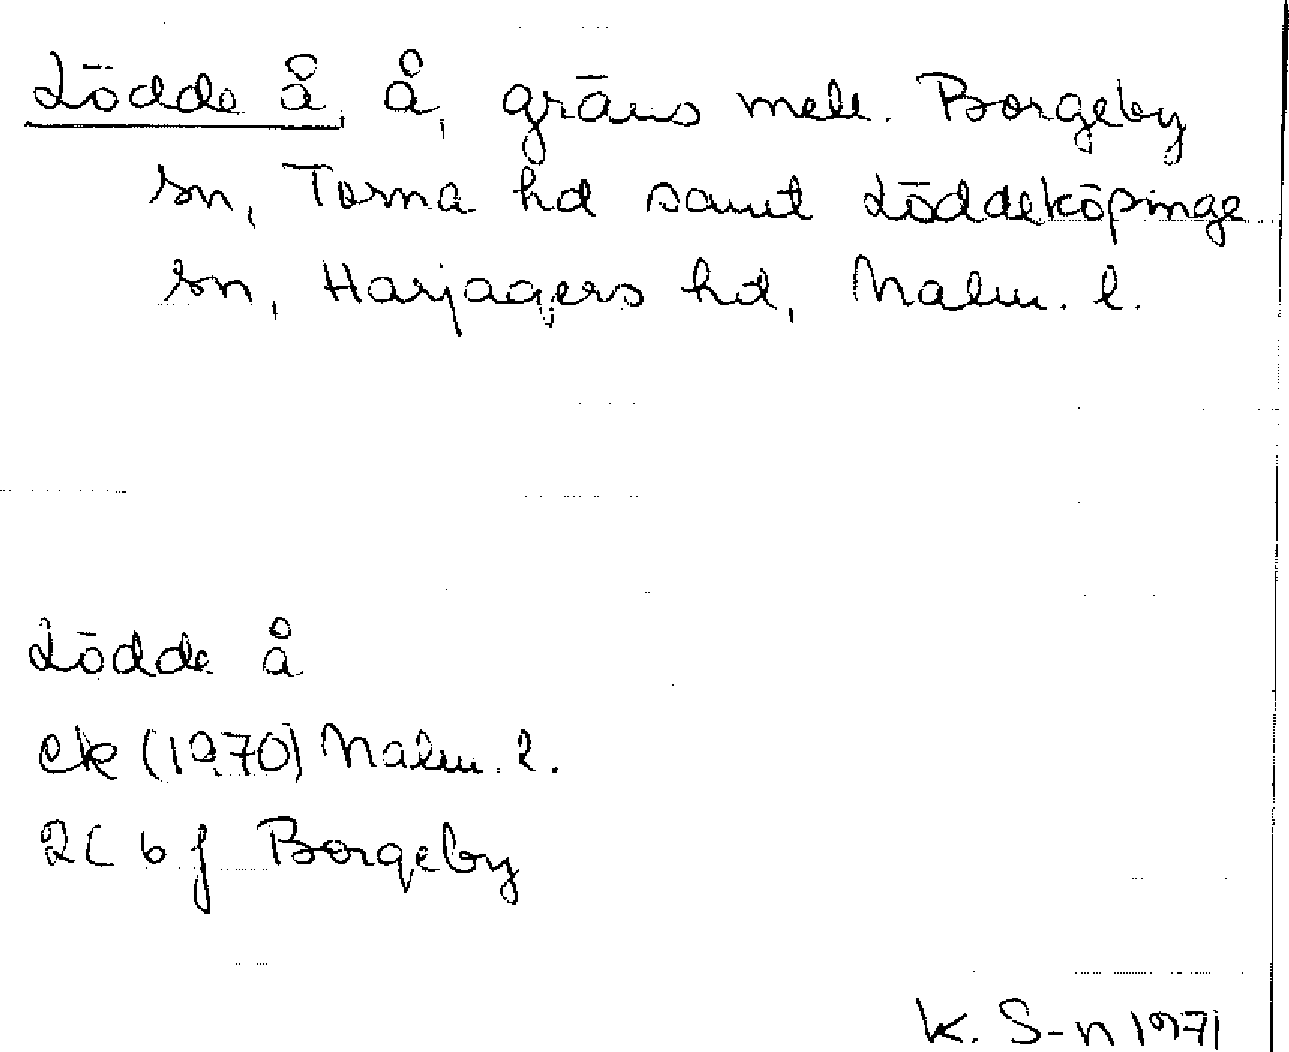 Lödde å, å, gräns mell. Borgeby
sn, Torna hd samt Löddeköpinge
sn, Harjagers hd, Malm. l.
Lödde å
ek (1970) Malm. l.
2C b f Borgeby
K. S-n 1971